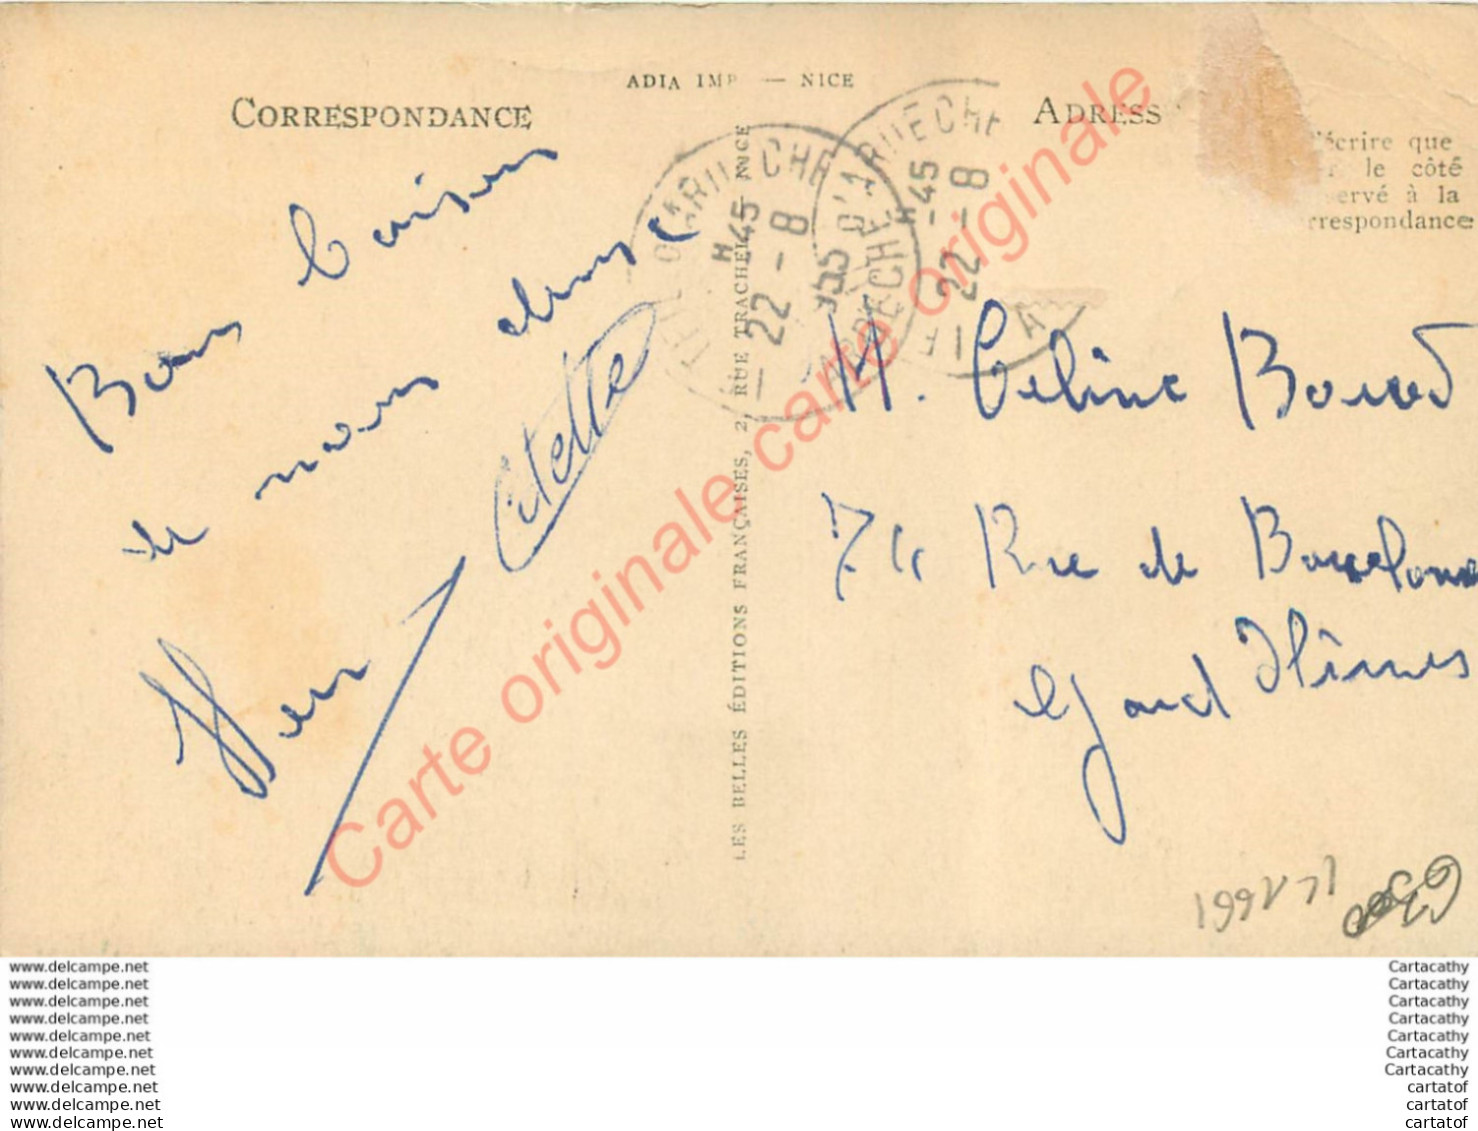 ADIA IMP — NICE
CORRESPONDANCE
ADRESS
écrire que
le côté
servé à la
rrespondance
Bons baisers
de nous deux
LES BELLES ÉDITIONS FRANÇAISES, 2, RUE TRACHEL - NICE
D'ARDECHE
H 45
22 - 8
955
ARDECHE
D'ARDECHE
H 45
22 - 8
M. Celine
74 Rue de Barcelone
Gard Nîmes
Carte originale carte originale
www.delcampe.net
www.delcampe.net
www.delcampe.net
www.delcampe.net
www.delcampe.net
www.delcampe.net
www.delcampe.net
www.delcampe.net
www.delcampe.net
www.delcampe.net
Cartacathy
Cartacathy
Cartacathy
Cartacathy
Cartacathy
Cartacathy
Cartacathy
cartatof
cartatof
cartatof